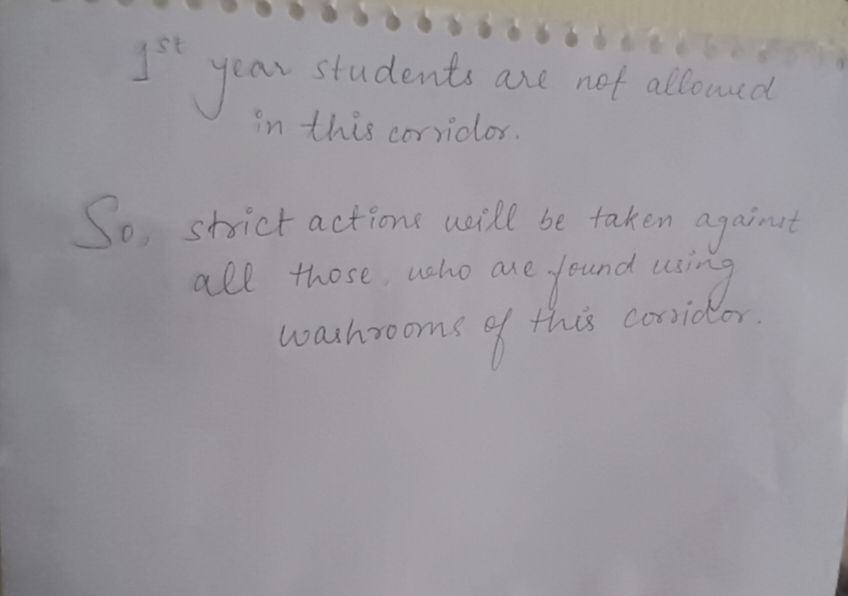 1st year students are not allowed
in this corridor.
So, strict actions will be taken against
all those, who are found using
washrooms of this corridor.